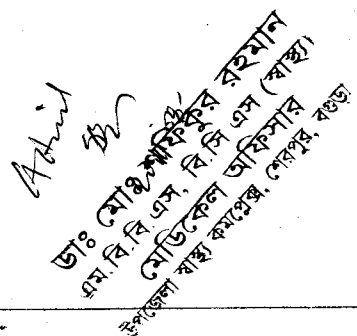 ডাঃ মোঃ শফিকুর রহমান
এম.বি.বি.এস, বি.সি এস (স্বাস্থ্য)
মেডিকেল অফিসার
উপজেলা স্বাস্থ্য কমপ্লেক্স, শেরপুর, বগুড়া